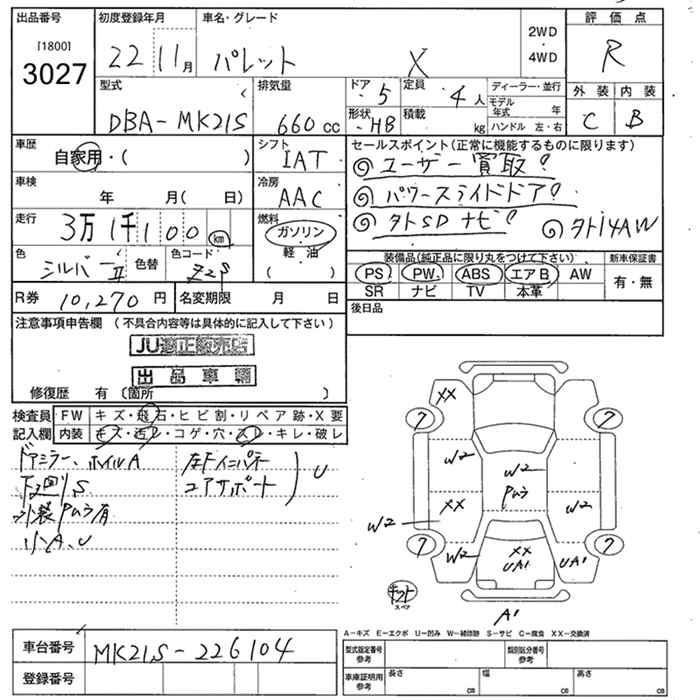 出品番号 初度登録年月 車名・グレード 評価点
[1800] 3027 22 11月 パレット X 2WD・4WD R
型式 排気量 ドア 定員 ディーラー・並行 外装 内装
DBA-MK21S 660cc 5 4人 モデル年式 年 C B
形状 HB 積載 kg ハンドル 左・右
車歴 自家用・( ) シフト IAT セールスポイント(正常に機能するものに限ります)
◎ユーザー買取!
車検 年 月( 日) 冷房 AAC ◎パワースライドドア!
走行 3万1千100km 燃料 ガソリン ◎外SDナビ! ◎外14AW
軽・油
色 シルバーII 色替 色コード Z2S ( ) 装備品(純正品に限り丸をつけて下さい) 新車保証書
PS PW ABS エアB AW 有・無
R券 10,270円 名変期限 月 日 SR ナビ TV 本革
後日品
注意事項申告欄 (不具合内容等は具体的に記入して下さい)
JU適正販売店
出品車輌
修復歴 有 (箇所 )
検査員 FW キズ・飛石・ヒビ割・リペア跡・X要
記入欄 内装 キズ・汚レ・コゲ・穴・スレ・キレ・破レ
ドアミラー、ホイルA 左F インパネ
下回りS コアサポート U
外装Pムラ有
小A、U
XX
7 7
W2 W2
Pムラ
XX W2
W2
7 7
W2 XX UA1 UA1
キット
スペア
A1
A-キズ E-エクボ U-凹み W-補修跡 S-サビ C-腐食 XX-交換済
車台番号 MK21S-226104 型式指定番号 参考 類別区分番号 参考
登録番号 車庫証明用 参考 長さ cm 幅 cm 高さ cm